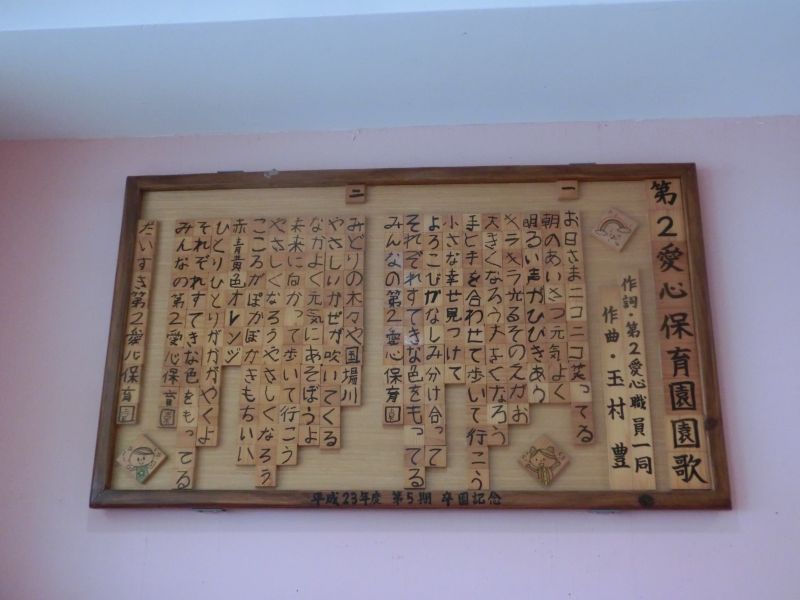 第2愛心保育園園歌
作詞・第2愛心職員一同
作曲・玉村 豊
一
お日さまニコニコ笑ってる
朝のあいさつ元気よく
明るい声がひびきあう
キラキラ光るそのえがお
大きくなろう大きくなろう
手と手を合わせて歩いて行こう
小さな幸せ見つけて
よろこびかなしみ分け合って
それぞれすてきな色をもってる
みんなの第2愛心保育園
二
みどりの木々や国場川
やさしいかぜが吹いてくる
なかよく元気にあそぼうよ
未来に向かって歩いて行こう
やさしくなろうやさしくなろう
こころがぽかぽかきもちいい
赤青黄色オレンジ
ひとりひとりがかがやくよ
それぞれすてきな色をもってる
みんなの第2愛心保育園
だいすき第2愛心保育園
平成23年度 第5期 卒園記念